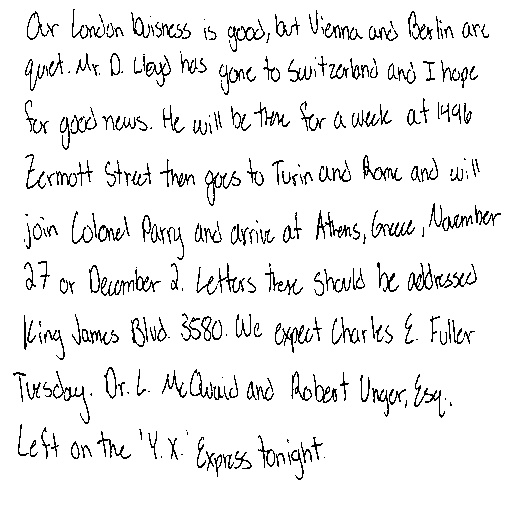 Our London buisness is good, but Vienna and Berlin are
quiet. Mr. D. Lloyd has gone to Switzerland and I hope
for good news. He will be there for a week at 1496
Zermott Street then goes to Turin and Rome and will
join Colonel Parry and arrive at Athens, Greece, November
27 or December 2. Letters there should be addressed
King James Blvd. 3580. We expect Charles E. Fuller
Tuesday. Dr. L. McQuaid and Robert Unger, Esq.,
Left on the 'Y.X.' Express tonight.